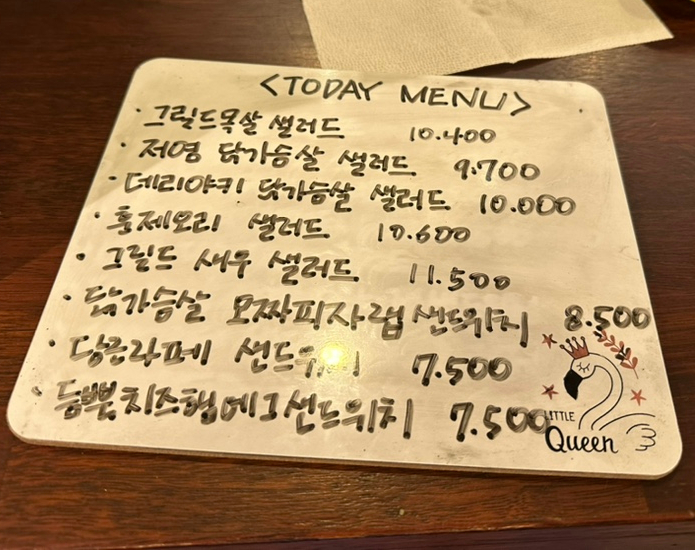 <TODAY MENU>
· 그릴드목살 샐러드 10.400
· 저염 닭가슴살 샐러드 9.700
· 데리야키 닭가슴살 샐러드 10.000
· 훈제오리 샐러드 10.600
· 그릴드 새우 샐러드 11.500
· 닭가슴살 모짜피자랩 샌드위치 8.500
· 당근라페 샌드위치 7.500
· 듬뿍치즈햄에그샌드위치 7.500
LITTLE
Queen